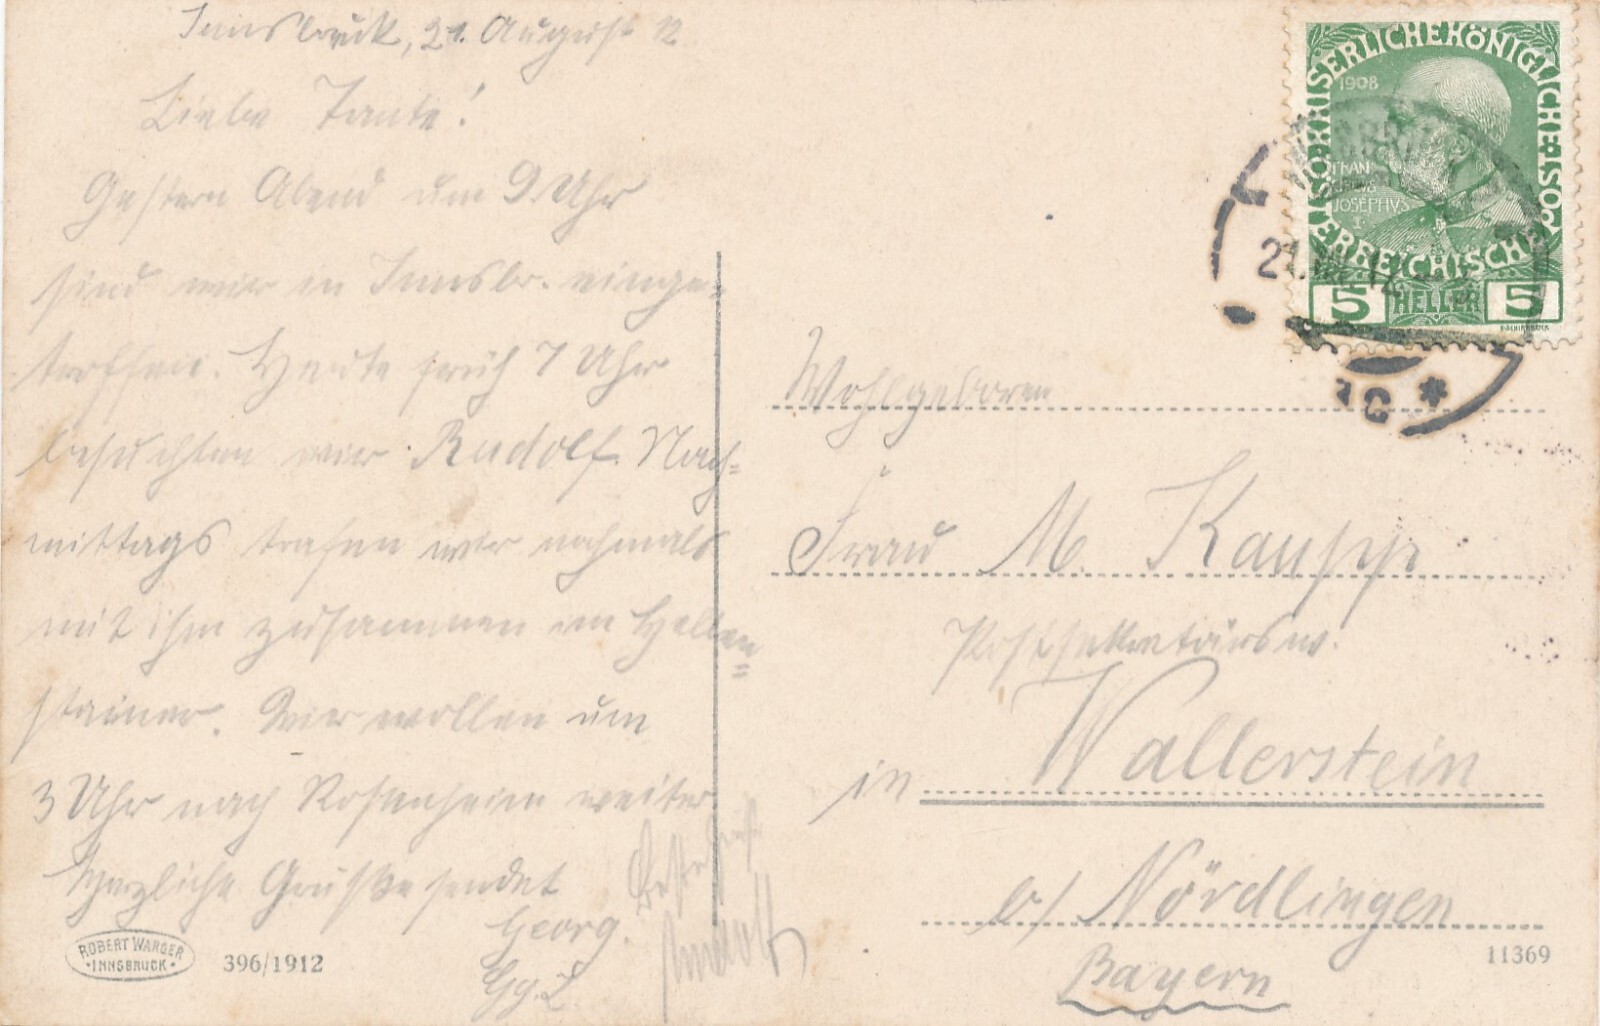 Innsbruck, 21. August 12
Liebe Tante!
Gestern Abend um 9 Uhr
sind wir in Innsbr. einge-
troffen. Heute früh 7 Uhr
besuchten wir Rudolf. Nach-
mittags trafen wir nochmals
mit ihm zusammen im Hellen-
stainer. Wir wollen um
3 Uhr nach Rosenheim weiter
Herzliche Grüße sendet
Georg.
Gg. L
Rudolf
ROBERT WARGER
INNSBRUCK
396/1912
KAISERLICHE KÖNIGLICHE ÖSTERREICHISCHE POST
1908
FRAN
JOSEPHVS
I
5 HELLER 5
21.VIII.12
Wohlgeboren
Frau M. Kaupp
Postsekretärsw.
in Wallerstein
b/ Nördlingen
Bayern
11369